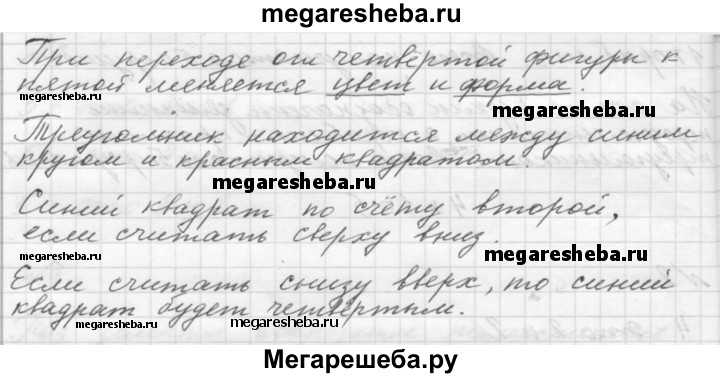 megaresheba.ru
При переходе от четвёртой фигуры к
пятой меняется цвет и форма.
megaresheba.ru
megaresheba.ru
Треугольник находится между синим
кругом и красным квадратом.
megaresheba.ru
megaresheba.ru
Синий квадрат по счёту второй,
если считать сверху вниз.
megaresheba.ru
megaresheba.ru
Если считать снизу вверх, то синий
квадрат будет четвёртым.
megaresheba.ru
megaresheba.ru
Мегарешеба.ру